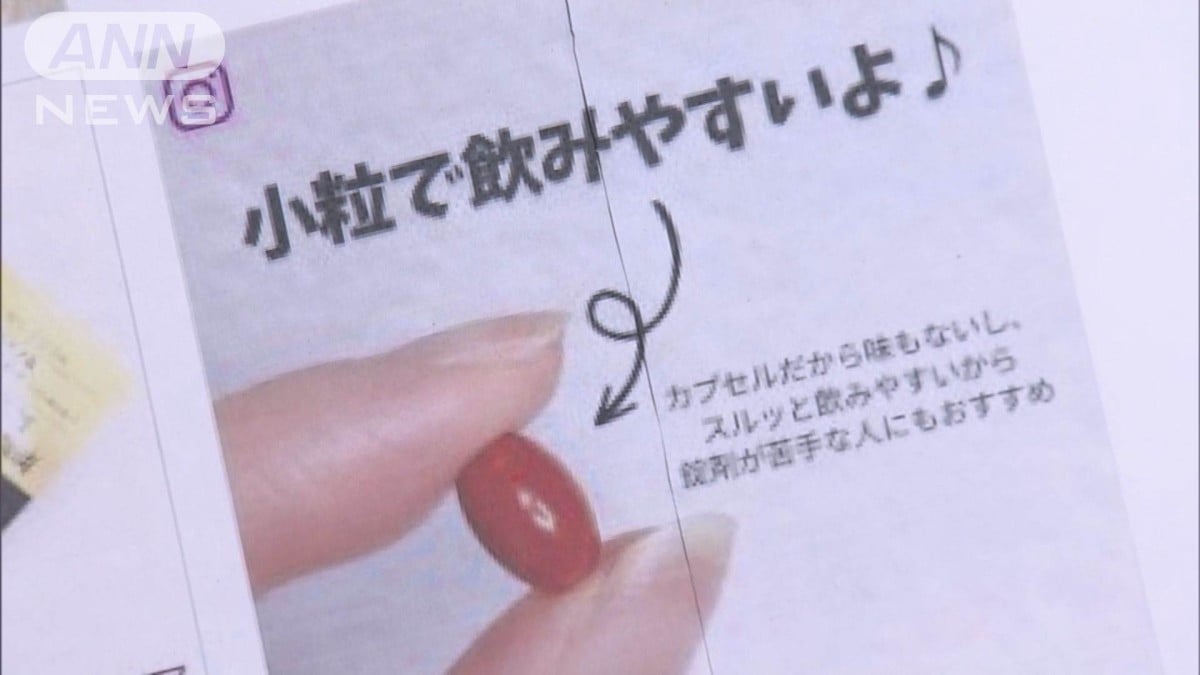 ANN
NEWS
小粒で飲みやすいよ♪
カプセルだから味もないし、
スルッと飲みやすいから
錠剤が苦手な人にもおすすめ